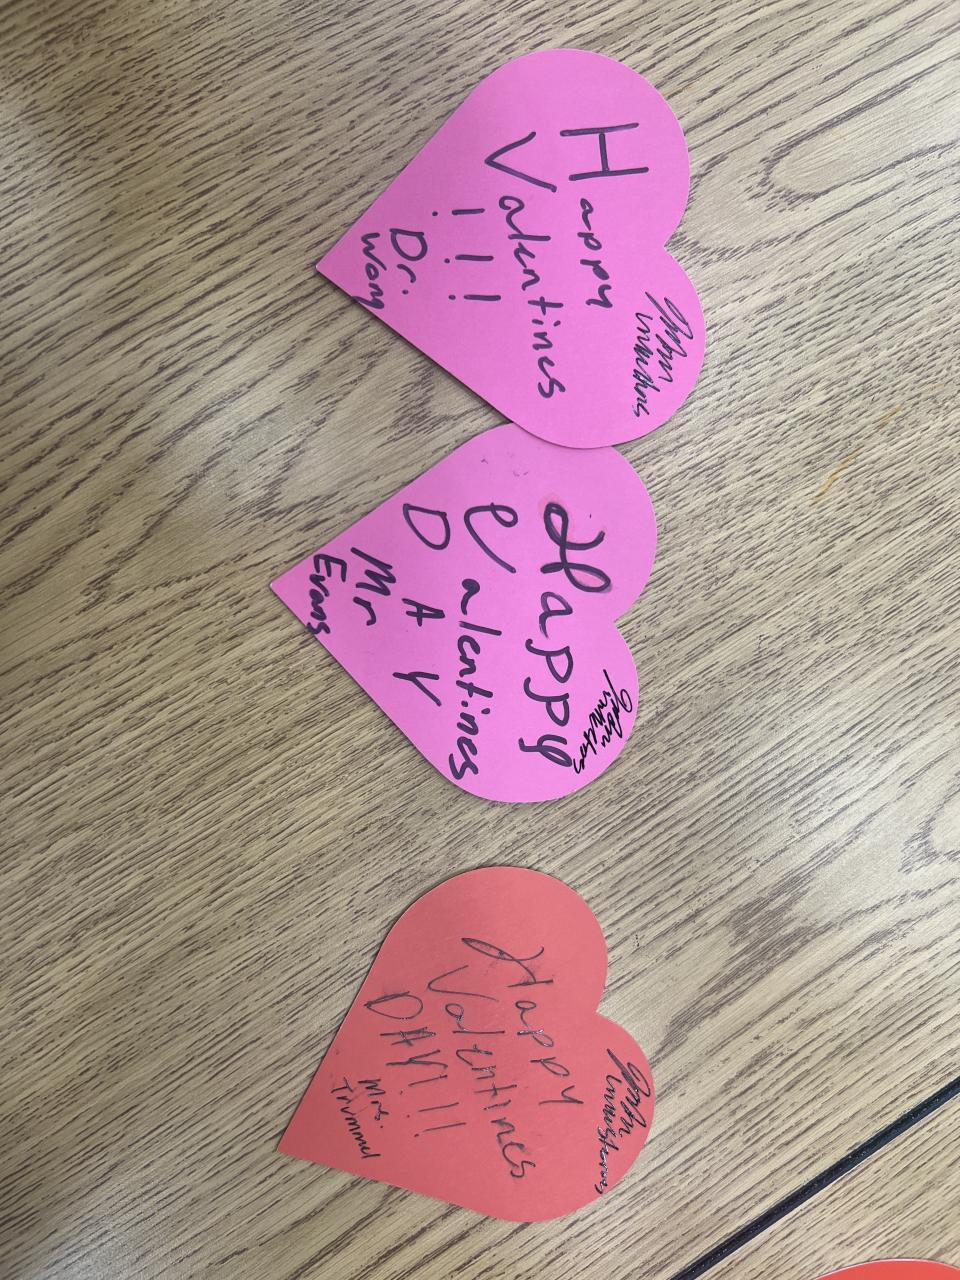 Happy
Valentines
! ! !
Dr.
Wong
Happy
Valentines
DAY
Mr
Evans
Happy
Valentines
DAY!!!
Mrs.
Trummel